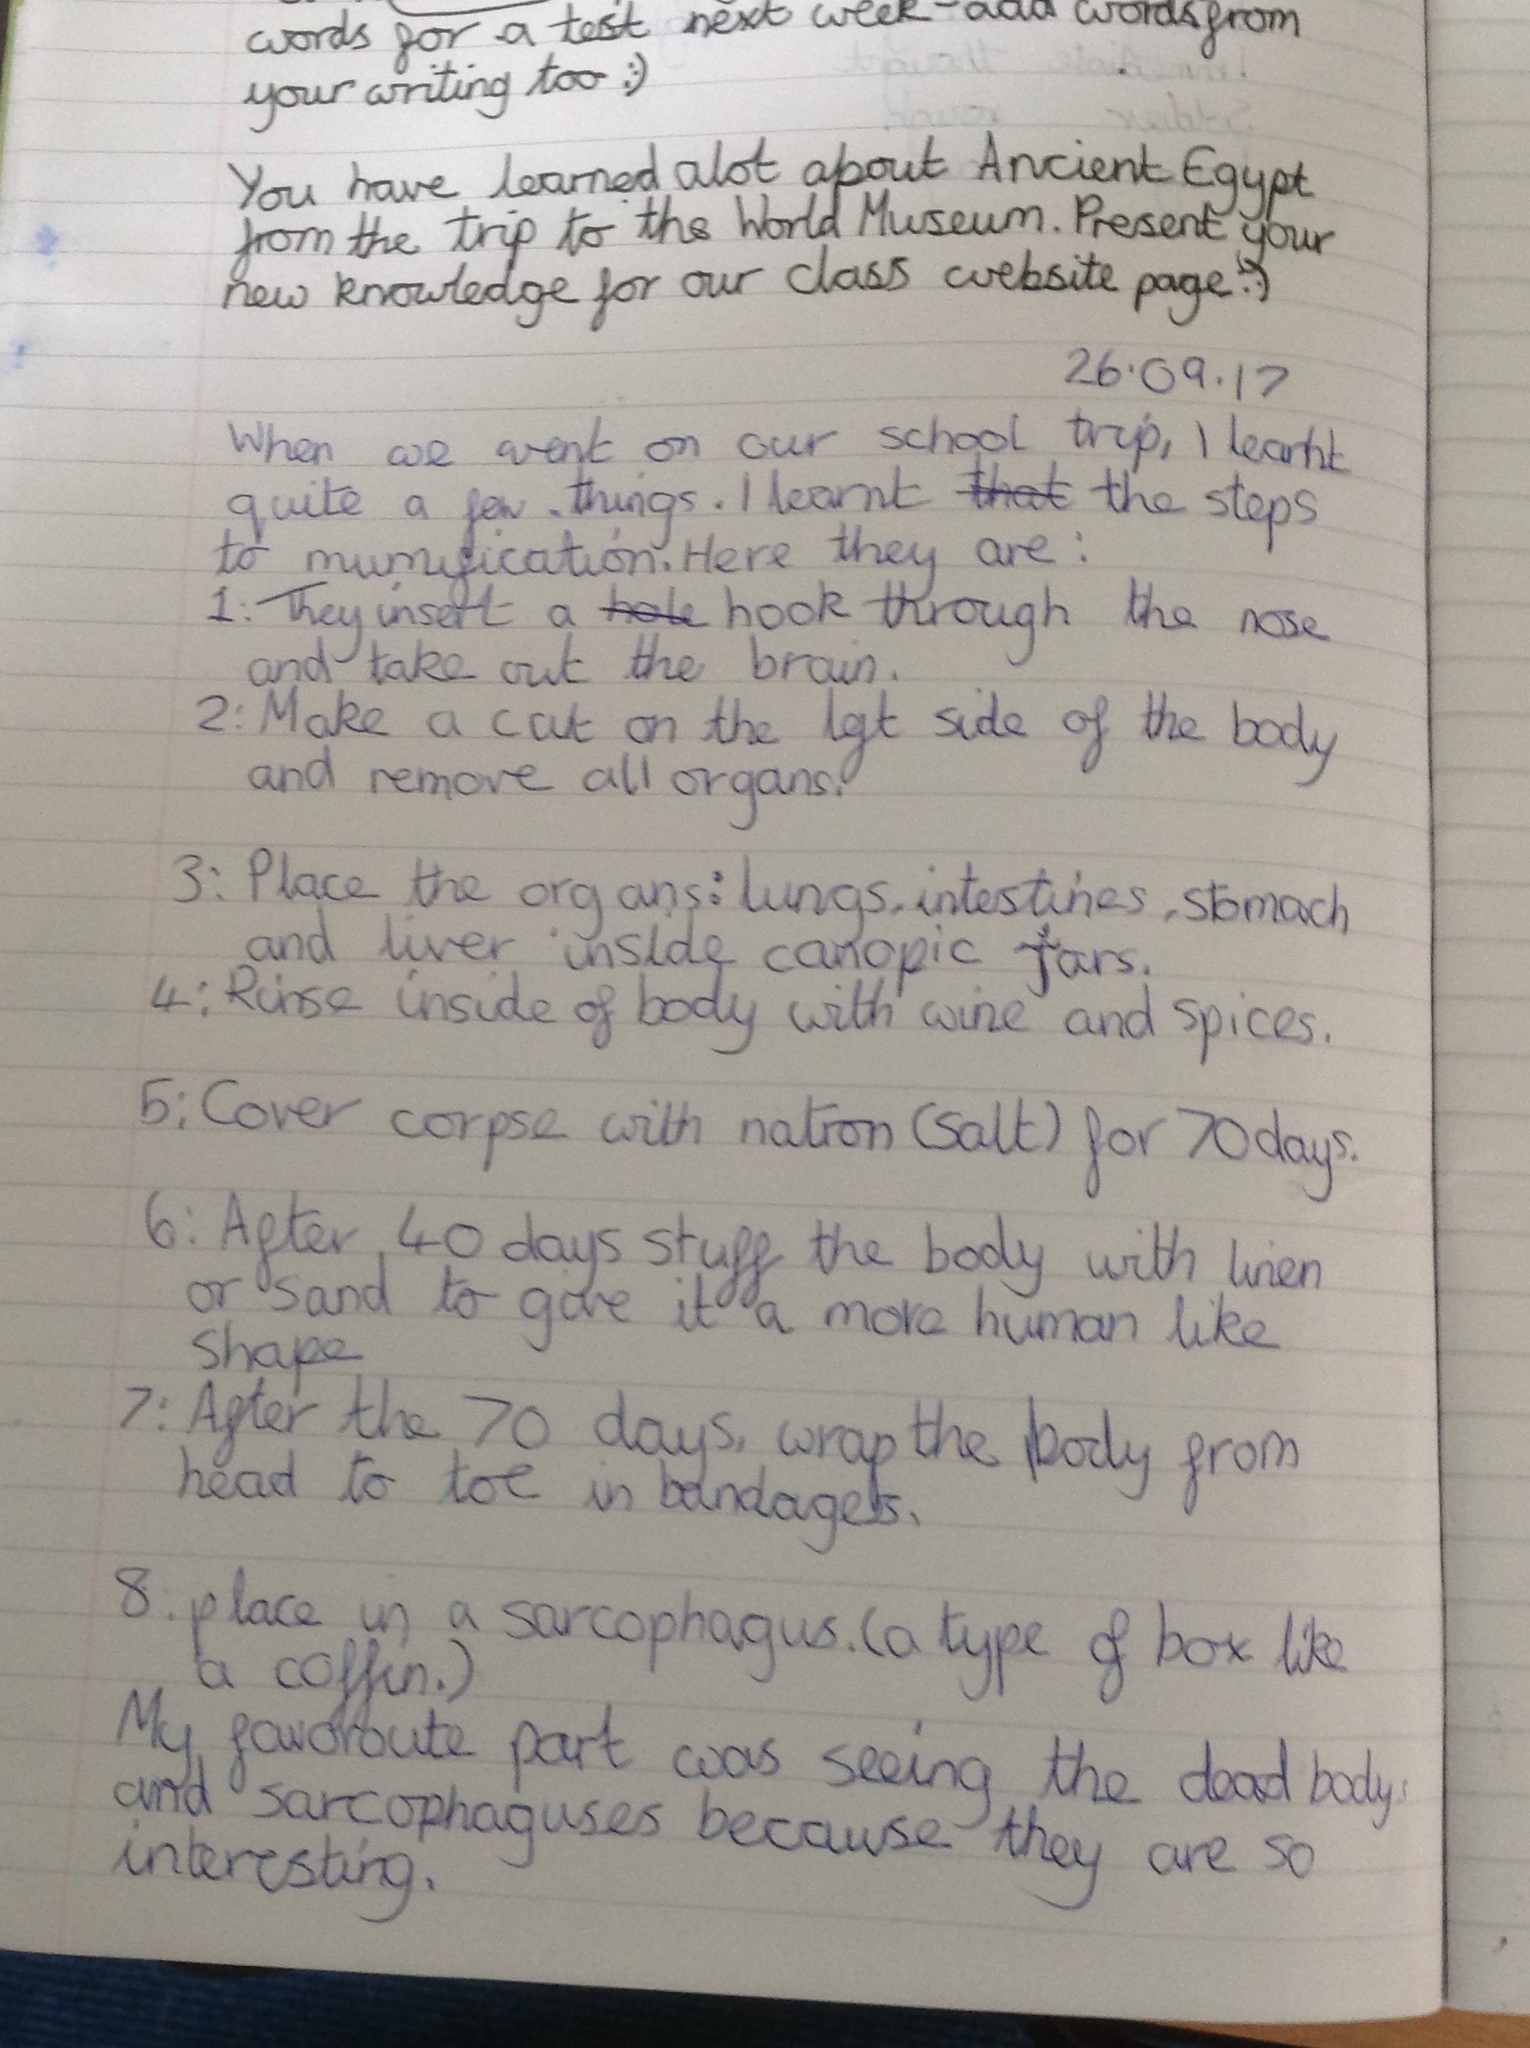 words for a test next week - add words from
your writing too :)
You have learned alot about Ancient Egypt
from the trip to the World Museum. Present your
new knowledge for our class website page :)
26.09.17
When we went on our school trip, I learnt
quite a few things. I learnt that the steps
to mumification. Here they are:
1: They insert a hole hook through the nose
and take out the brain.
2: Make a cut on the left side of the body
and remove all organs.
3: Place the organs: lungs, intestines, stomach
and liver inside canopic jars.
4: Rinse inside of body with wine and spices.
5: Cover corpse with natron (salt) for 70 days.
6: After 40 days stuff the body with linen
or sand to give it a more human like
shape
7: After the 70 days, wrap the body from
head to toe in bandages.
8. place in a sarcophagus. (a type of box like
a coffin.)
My favoroute part was seeing the dead body
and sarcophaguses because they are so
interesting.